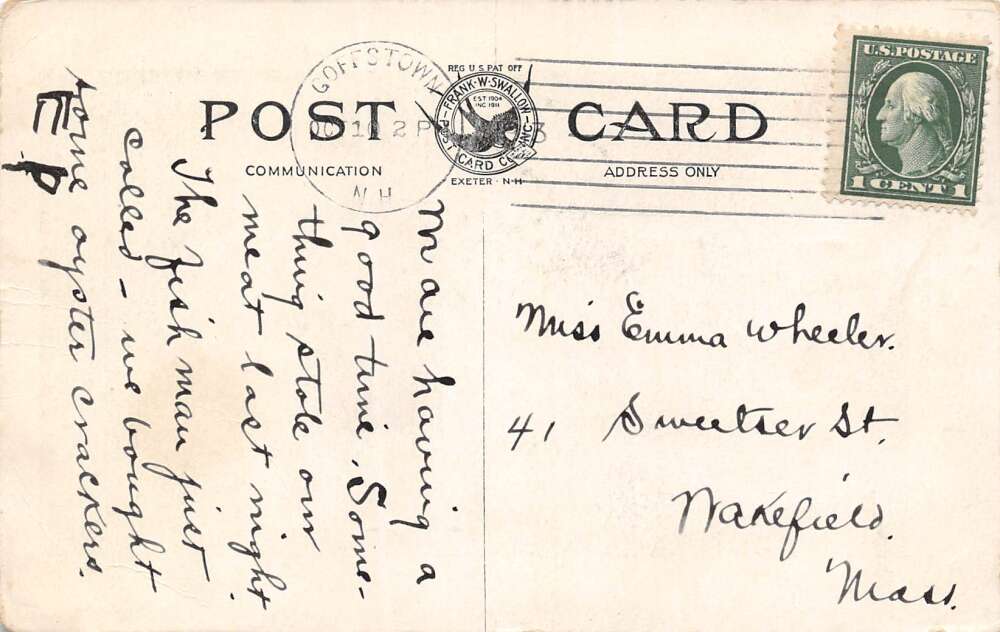 REG U.S PAT OFF
POST CARD
FRANK·W·SWALLOW
EST 1904
INC 1911
POST CARD CO. INC.
EXETER·N·H
COMMUNICATION
ADDRESS ONLY
GOFFSTOWN
2 P
N.H.
U.S. POSTAGE
1 CENT 1
are having a
good time. Some-
thing stole our
meat last night
The fish man just
called – we bought
some oyster crackers.
Miss Emma Wheeler.
41 Sweetser St.
Wakefield.
Mass.